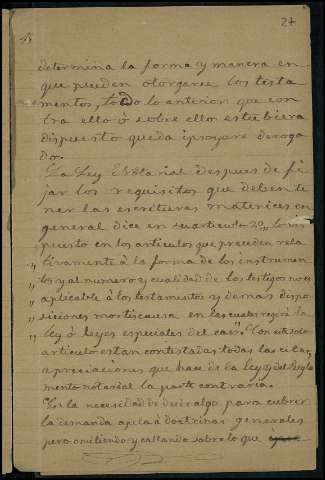 27
determina la forma y manera en
que pueden otorgarse los testa
mentos, todo lo anterior que con
tra ello ó sobre ello estubiera
dispuesto queda ipso jure deroga
do.
La Ley Notarial despues de fi
jar los requisitos que deben te
ner las escrituras matrices en
general dice en su articulo 29 "lo dis
puesto en los articulos que preceden rela
" tivamente á la forma de los instrumen
" tos y al numero y cualidad de los testigos no es
" aplicable á los testamentos y demas dispo
" siciones mortis causa en las cuales regirá la
" ley ó leyes especiales del caso". Con este solo
articulo estan contestadas todas las citas,
apreciaciones que hace de la ley y del Regla
mento notarial la parte contraria.
En la necesidad de decir algo para cubrir
la demanda apela á doctrinas generales
pero omitiendo y callando sobre lo que